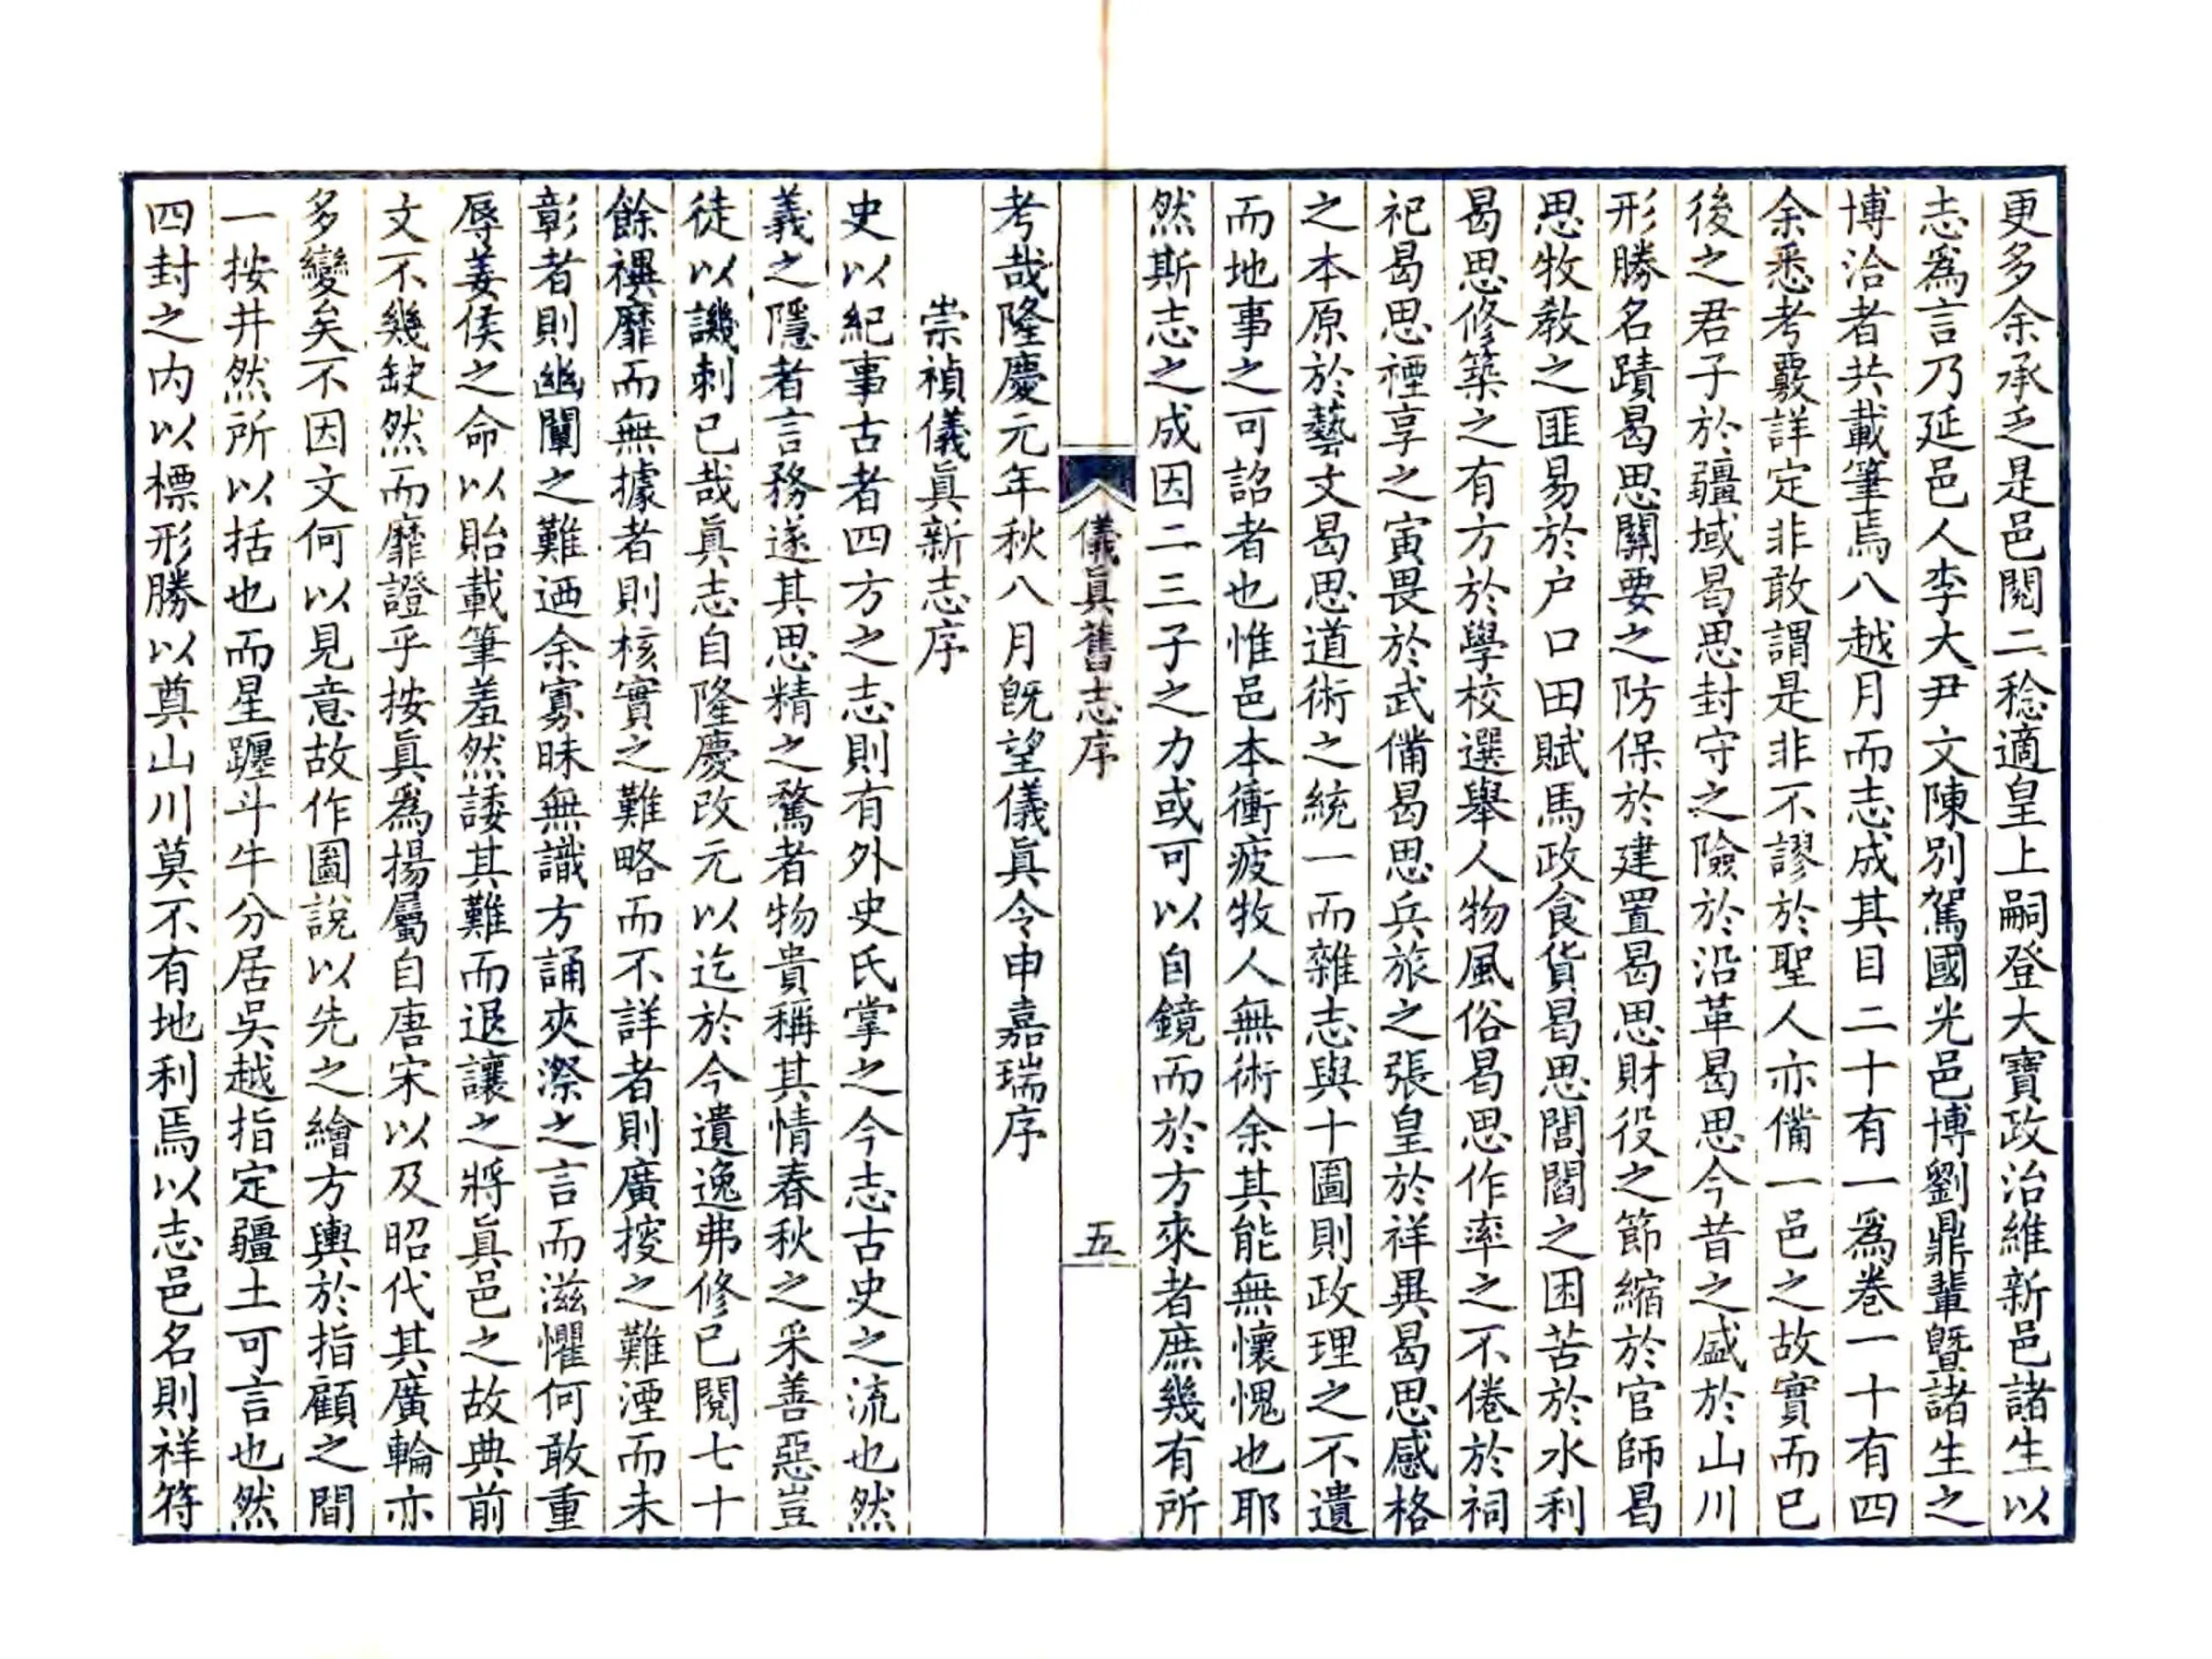 更多余承乏是邑閱二稔適皇上嗣登大寶政治維新邑諸生以
志爲言乃延邑人李大尹文陳別駕國光邑博劉鼎輩曁諸生之
博洽者共載筆焉八越月而志成其目二十有一爲卷一十有四
余悉考覈詳定非敢謂是非不謬於聖人亦備一邑之故實而已
後之君子於疆域曷思封守之險於沿革曷思今昔之盛於山川
形勝名蹟曷思關要之防保於建置曷思財役之節縮於官師曷
思牧敎之匪易於户口田賦馬政食貨曷思閭閻之困苦於水利
曷思修築之有方於學校選舉人物風俗曷思作率之不倦於祠
祀曷思禋享之寅畏於武備曷思兵旅之張皇於祥異曷思感格
之本原於藝文曷思道術之統一而雜志與十圖則政理之不遺
而地事之可詔者也惟邑本衝疲牧人無術余其能無懷愧也耶
然斯志之成因二三子之力或可以自鏡而於方來者庶幾有所
儀眞舊志序
五
考哉隆慶元年秋八月旣望儀眞令申嘉瑞序
崇禎儀眞新志序
史以紀事古者四方之志則有外史氏掌之今志古史之流也然
義之隱者言務遂其思精之騖者物貴稱其情春秋之釆善惡豈
徒以譏刺已哉眞志自隆慶改元以迄於今遺逸弗修已閱七十
餘禩靡而無據者則核實之難略而不詳者則廣搜之難湮而未
彰者則幽闡之難迺余寡昧無識方誦夾漈之言而滋懼何敢重
辱姜侯之命以貽載筆羞然諉其難而退讓之將眞邑之故典前
文不幾缺然而靡證乎按眞爲揚屬自唐宋以及昭代其廣輪亦
多變矣不因文何以見意故作圖說以先之繪方輿於指顧之間
一按井然所以括也而星躔斗牛分居吳越指定疆土可言也然
四封之内以標形勝以奠山川莫不有地利焉以志邑名則祥符